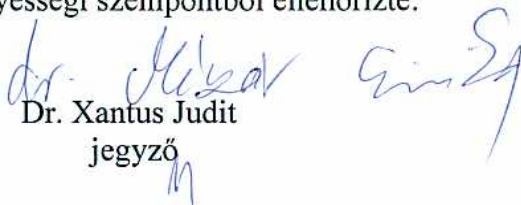 yességi szempontból ellenőrizte:
dr.
Dr. Xantus Judit
jegyző